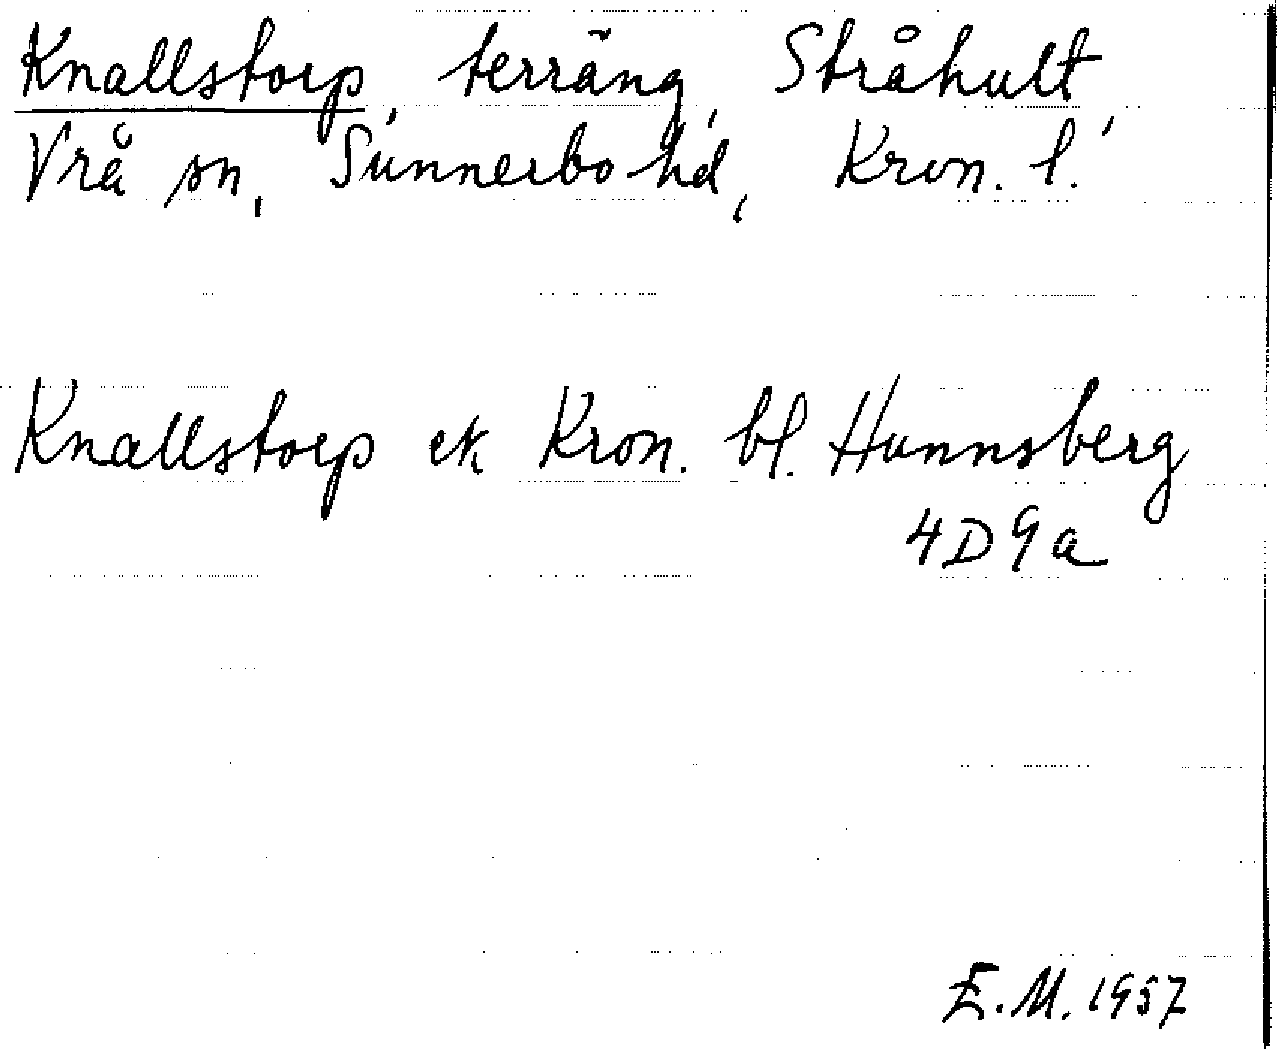 Knallstorp, terräng, Stråhult,
Vrå sn, Sunnerbo hd, Kron. l.
Knallstorp ek Kron. bl. Hannsberg
4D9a
E.M. 1957